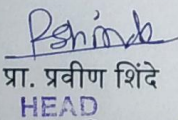 Pshinde
प्रा. प्रवीण शिंदे
HEAD